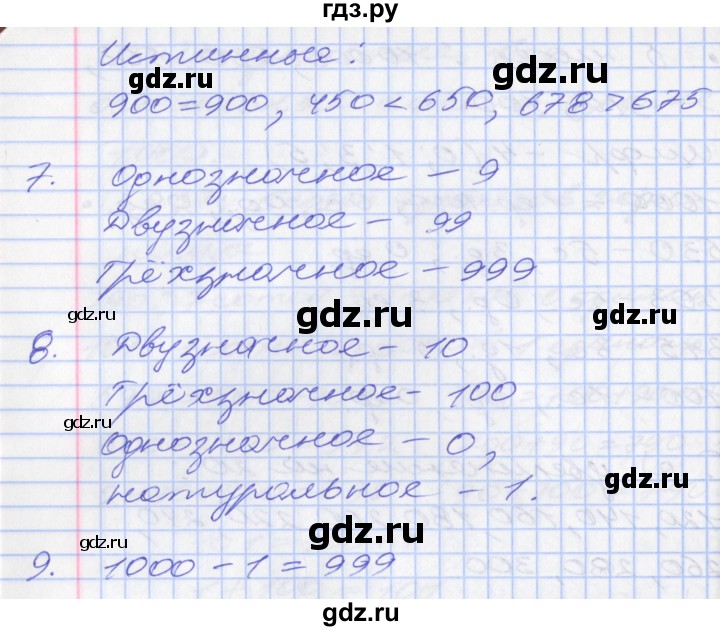 гдз.ру
Истинные:
900=900, 450<650, 678>675
7. Однозначное – 9
Двузначное – 99
Трёхзначное – 999
8. Двузначное – 10
Трёхзначное – 100
Однозначное – 0,
натуральное – 1.
9. 1000 – 1 = 999
gdz.ru
gdz.ru
gdz.ru
gdz.ru
gdz.ru
gdz.ru
gdz.ru
gdz.ru
gdz.ru
gdz.ru